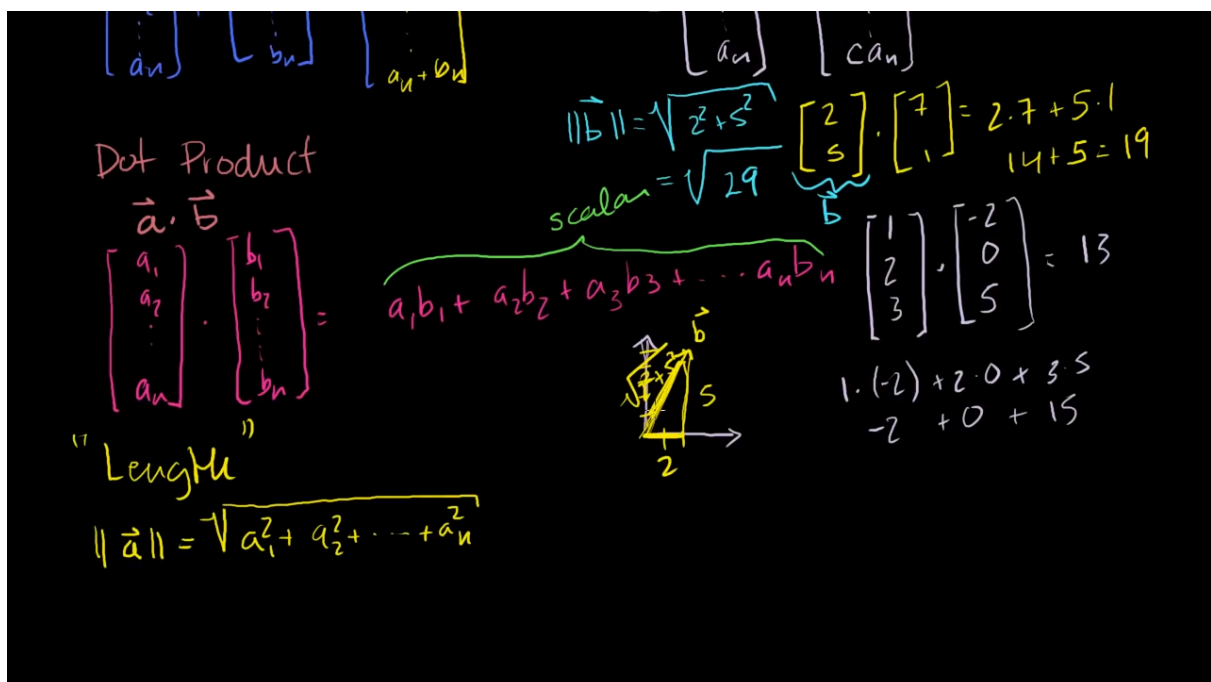 a_n b_n a_n + b_n a_n ca_n
||b⃗|| = √(2² + 5²)
= √29
[2 5] · [7 1] = 2·7 + 5·1
14 + 5 = 19
b⃗
Dot Product
a⃗ · b⃗
scalar
[a₁ a₂ ⋮ a_n] · [b₁ b₂ ⋮ b_n] = a₁b₁ + a₂b₂ + a₃b₃ + ···· a_n b_n
[1 2 3] · [-2 0 5] = 13
1·(-2) + 2·0 + 3·5
-2 + 0 + 15
b⃗
√(2² + 5²)
5
2
"Length"
||a⃗|| = √(a₁² + a₂² + ···· + a_n²)